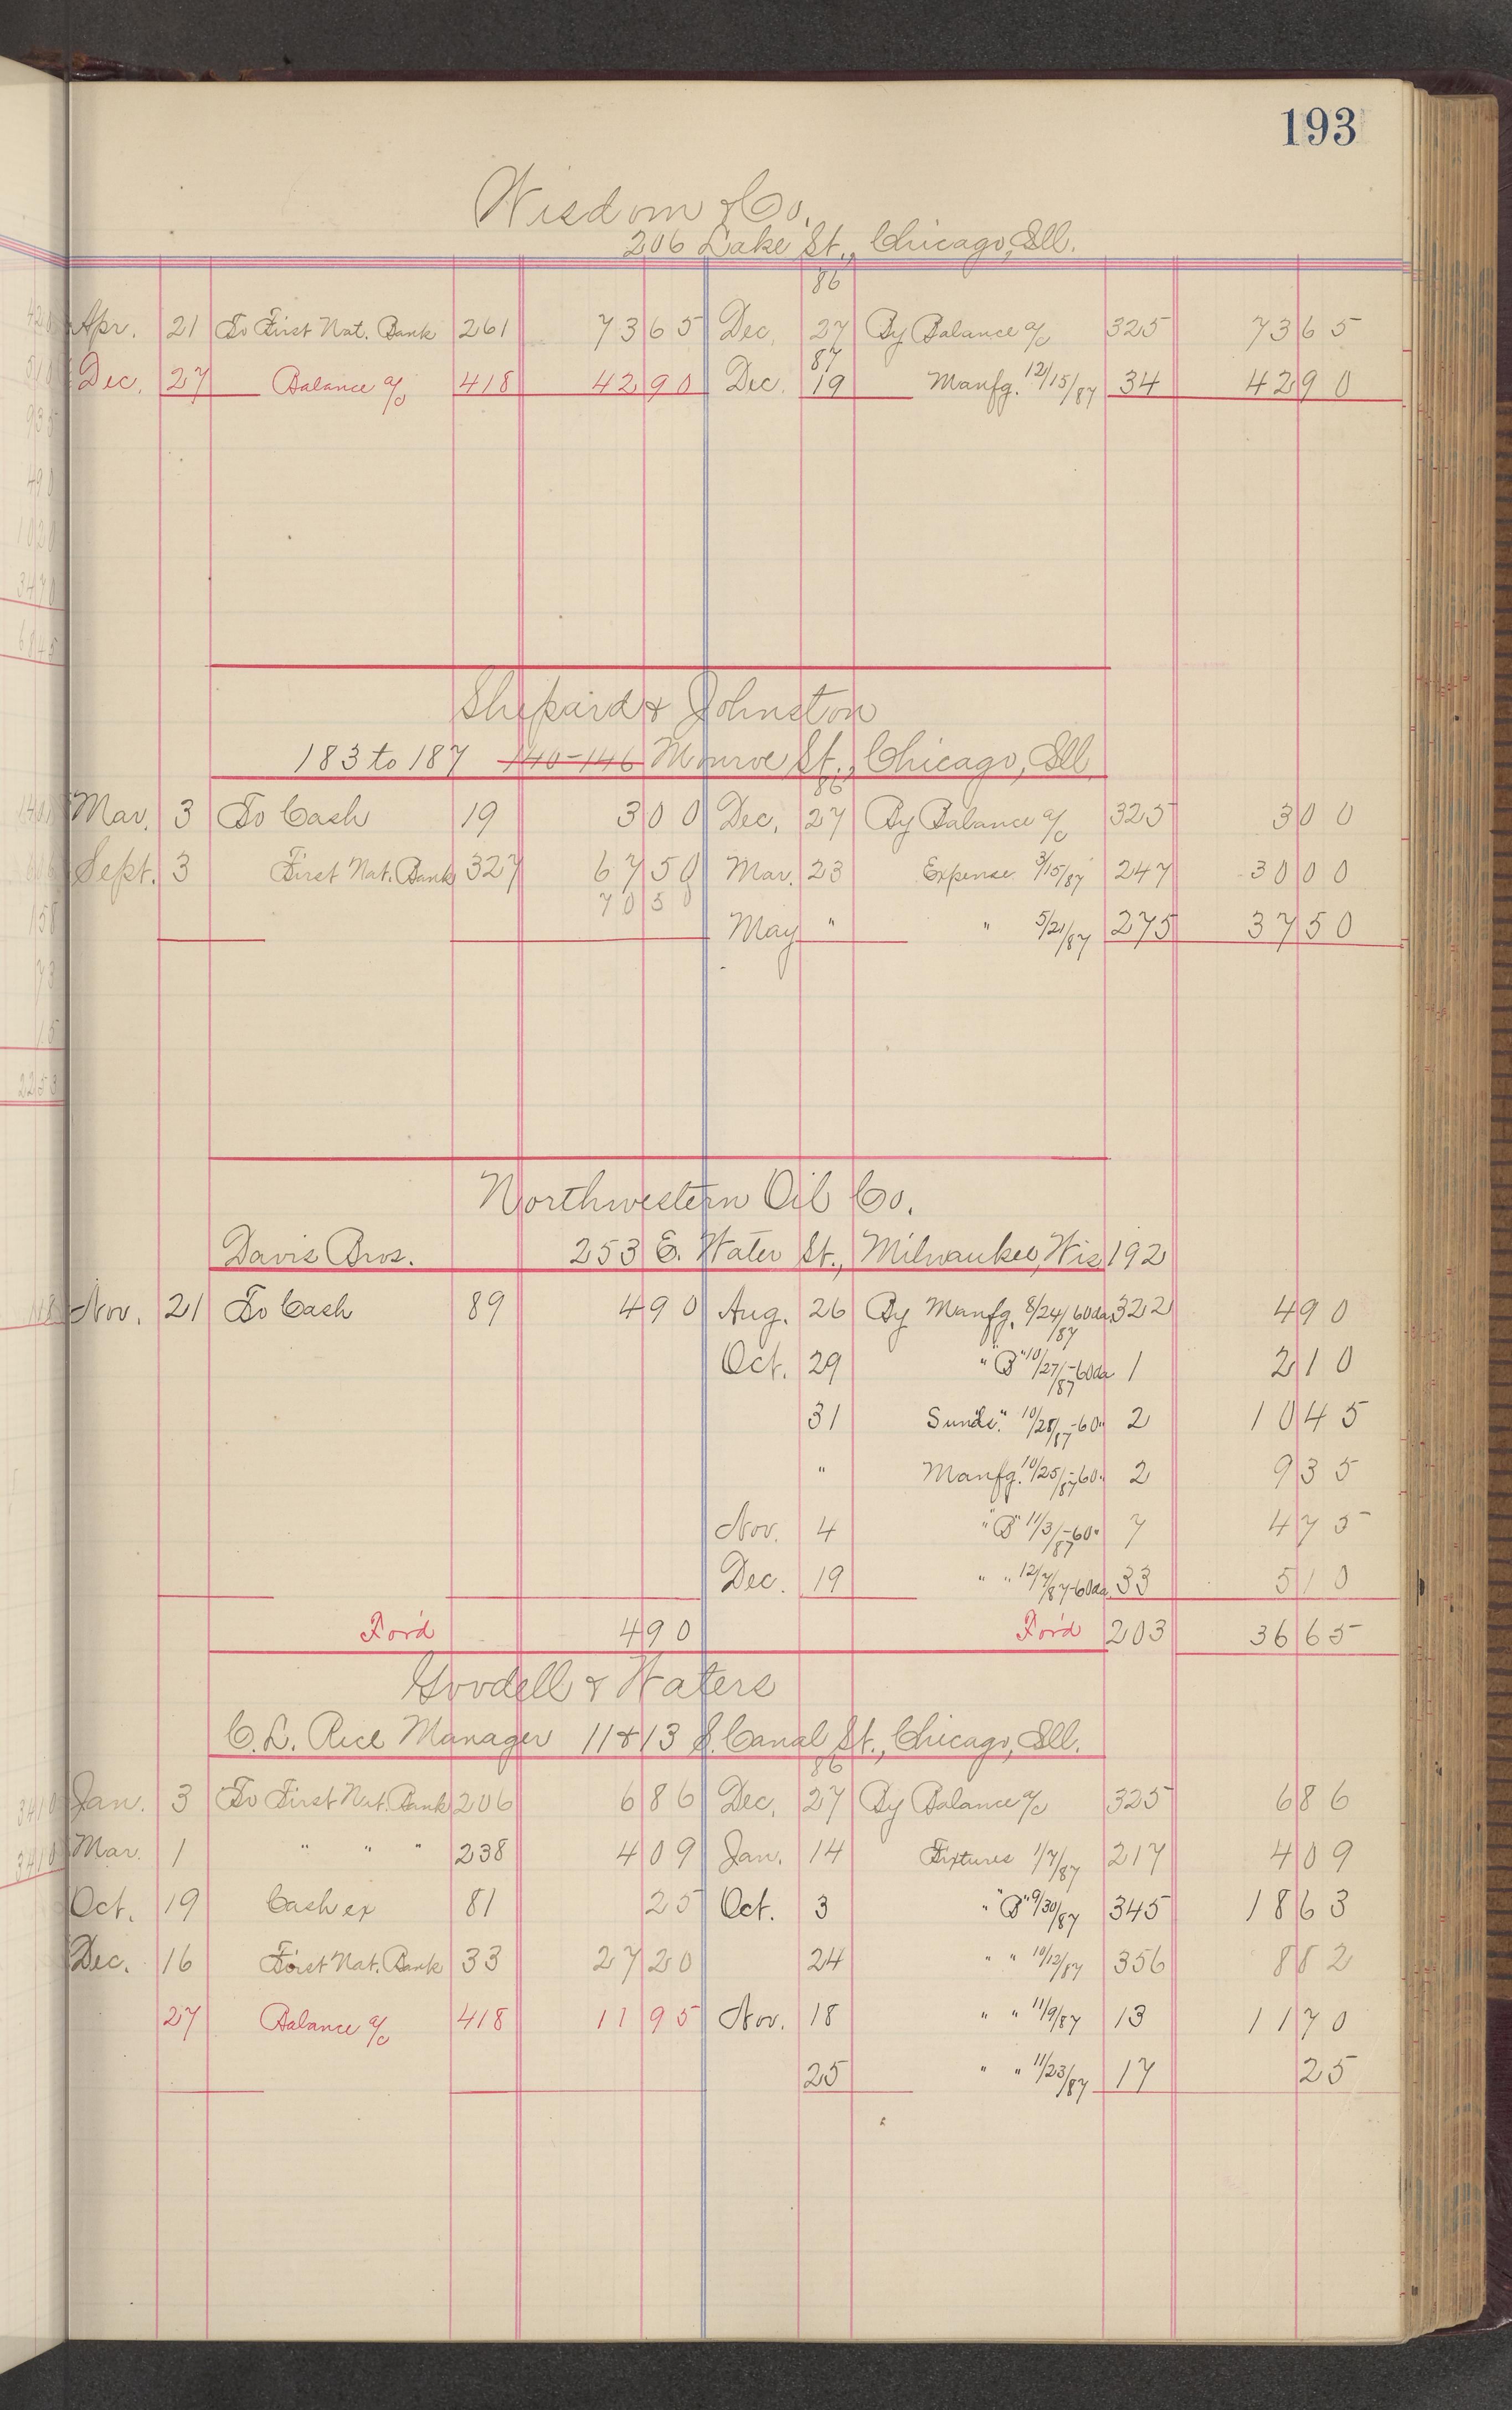 193
Wisdom & Co.
206 Lake St., Chicago, Ill.
86
Apr. 21 To First Nat. Bank 261 73 65 Dec. 27 By Balance a/c 325 73 65
87
Dec. 27 Balance a/c 418 42 90 Dec. 19 Manfg. 12/15/87 34 42 90
Shepard & Johnston
183 to 187 140-146 Monroe St., Chicago, Ill.
86
Mar. 3 To Cash 19 3 00 Dec. 27 By Balance a/c 325 3 00
Sept. 3 First Nat. Bank 327 67 50 Mar. 23 Expense 3/15/87 247 30 00
70 50
May " " 5/21/87 275 37 50
Northwestern Oil Co.
Davis Bros. 253 E. Water St., Milwaukee, Wis 192
Nov. 21 To Cash 89 4 90 Aug. 26 By Manfg. 8/24/87 60da. 322 4 90
Oct. 29 " "B" 10/27/87-60da 1 2 10
31 Sunds. 10/28/87-60" 2 10 45
" Manfg. 10/25/87-60" 2 9 35
Nov. 4 " "B" 11/3/87-60" 7 4 75
Dec. 19 " " 12/7/87-60da. 33 5 10
For'd 4 90 For'd 203 36 65
Goodell & Waters
C. L. Rice Manager 11 & 13 S. Canal St., Chicago, Ill.
86
Jan. 3 To First Nat. Bank 206 6 86 Dec. 27 By Balance a/c 325 6 86
Mar. 1 " " " 238 4 09 Jan. 14 Fixtures 1/7/87 217 4 09
Oct. 19 Cash ex 81 25 Oct. 3 " "B" 9/30/87 345 18 63
Dec. 16 First Nat. Bank 33 27 20 24 " " 10/12/87 356 8 82
27 Balance a/c 418 11 95 Nov. 18 " " 11/9/87 13 11 70
25 " " 11/23/87 17 25